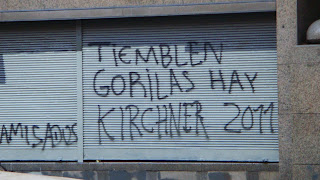 TIEMBLEN
GORILAS HAY
KIRCHNER 2011
AMISADOS